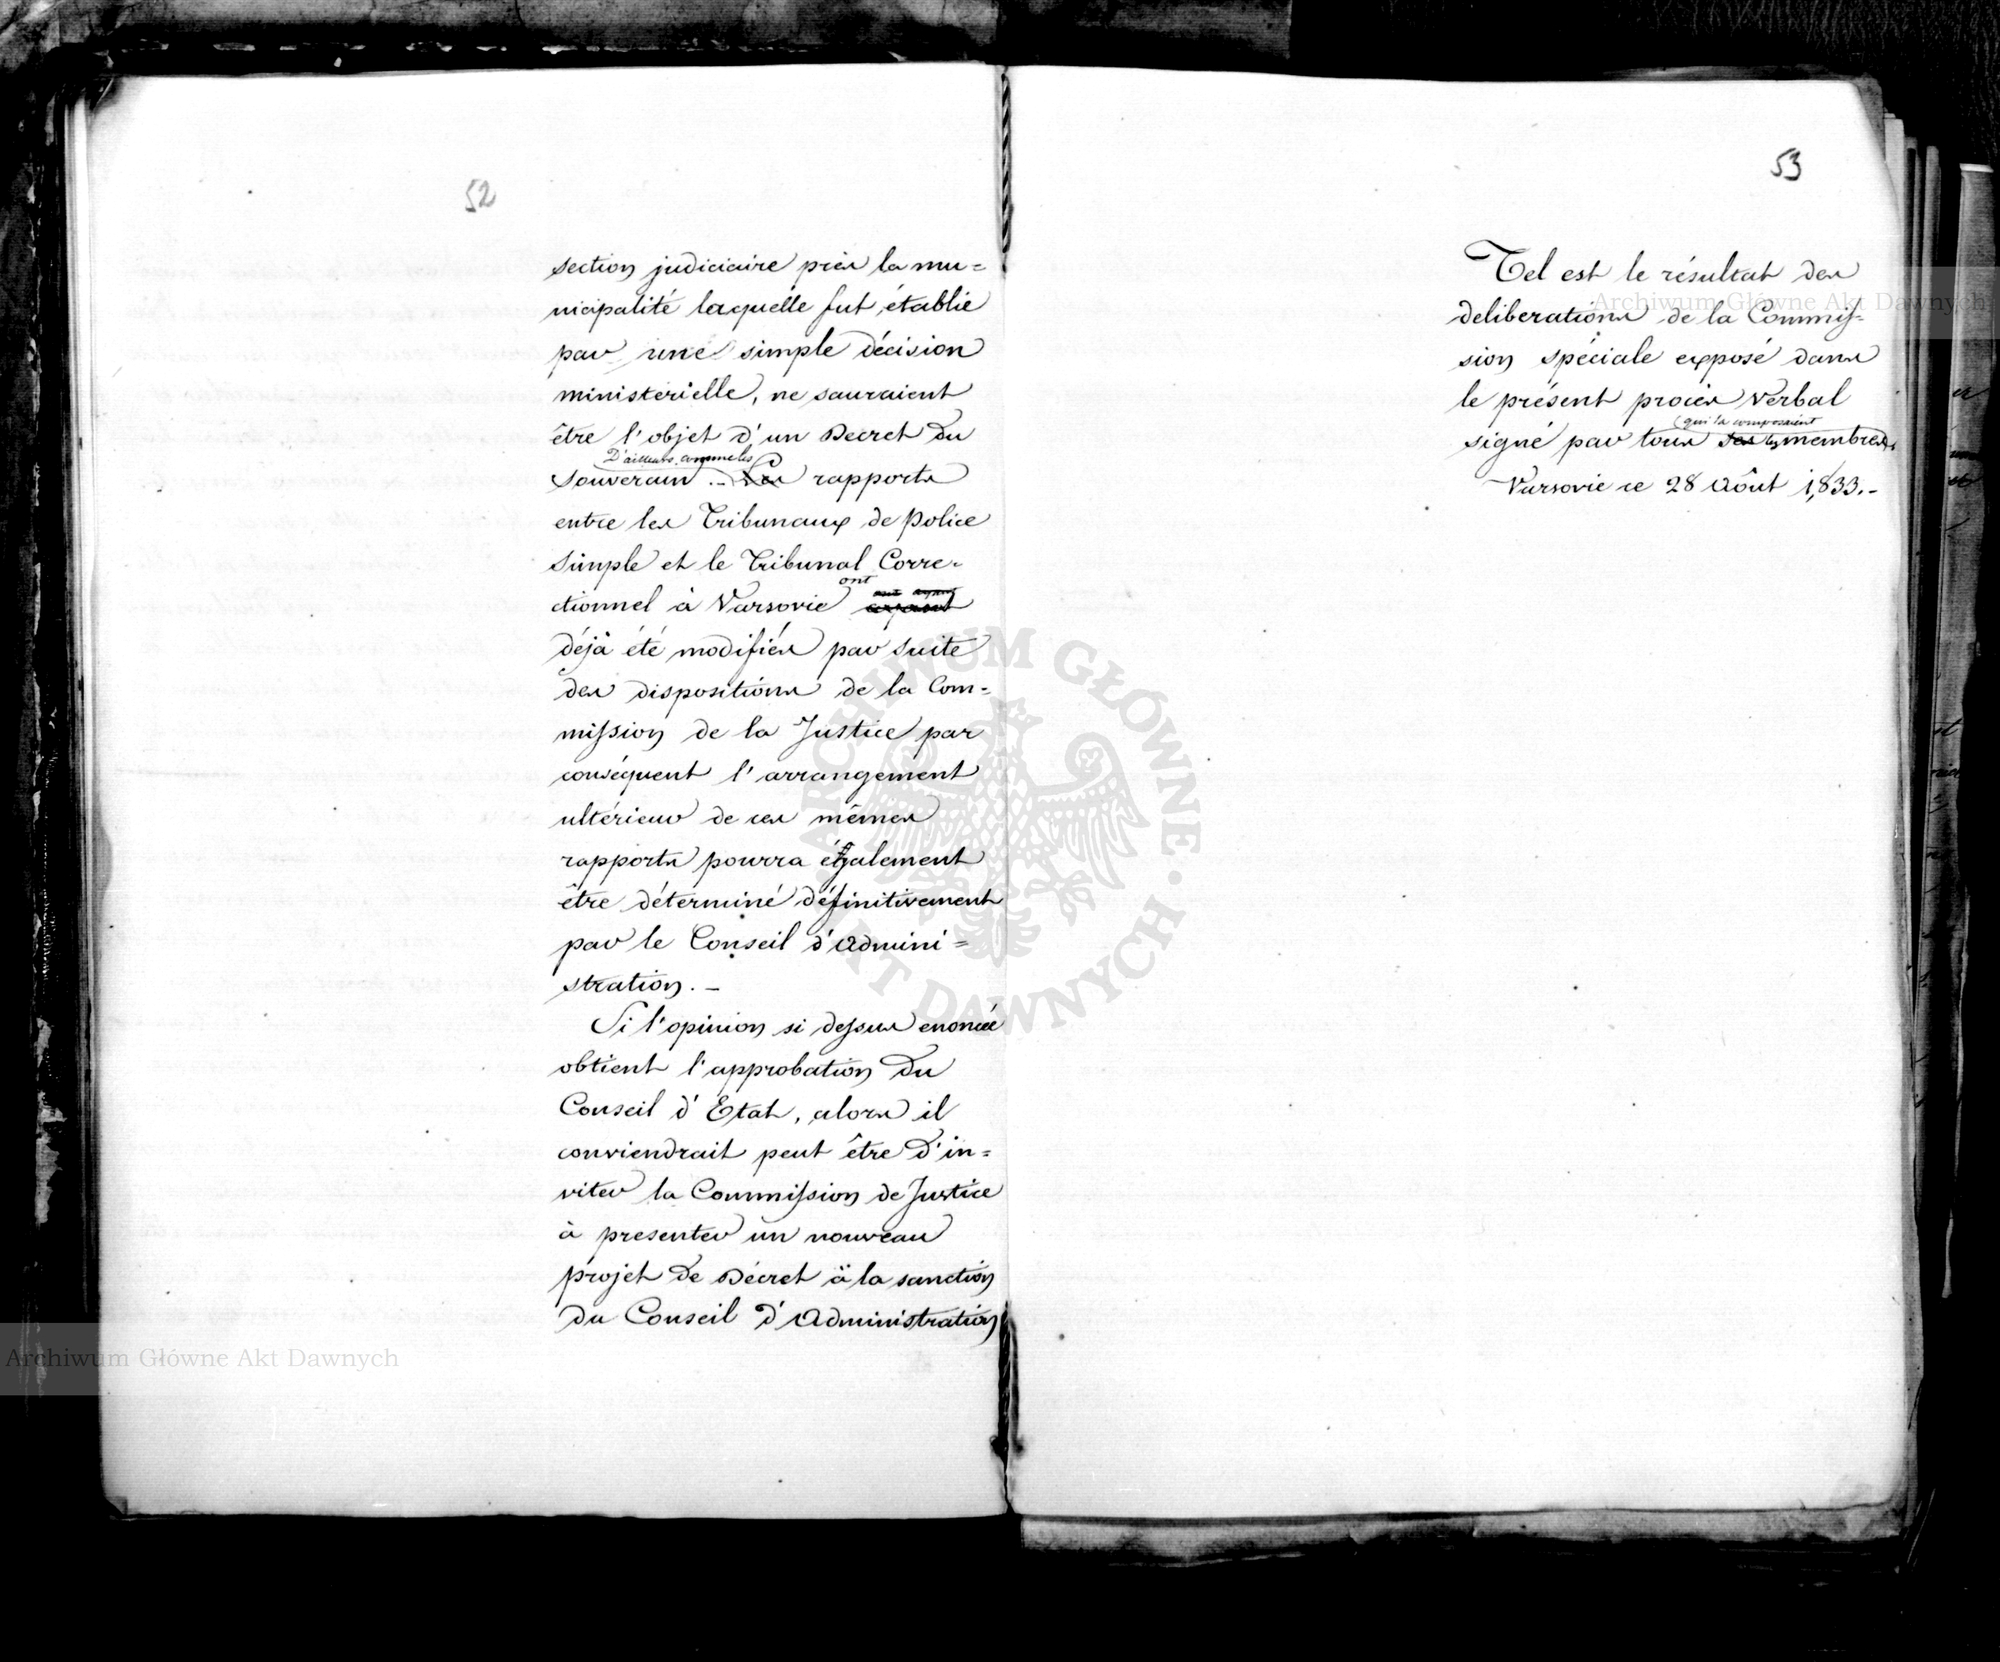 52
section judiciaire près la mu=
nicipalité laquelle fut établie
par une simple décision
ministerielle, ne sauraient
être l'objet d'un Decret du
D'ailleurs comme les
Souverain. - Les rapports
entre les Tribunaux de Police
Simple et le Tribunal Corre-
ctionnel à Varsovie ont
déjà été modifiés par suite
des dispositions de la Com-
mission de la Justice par
conséquent l'arrangement
ultérieur de ces mêmes
rapports pourra également
être déterminé définitivement
par le Conseil d'Admini=
stration. -
Si l'opinion si dessus enoncée
obtient l'approbation du
Conseil d'Etat, alors il
conviendrait peut être d'in=
viter la Commission de Justice
à presenter un nouveau
projet de Décret à la sanction
du Conseil d'Administration
53
Tel est le résultat des
deliberations de la Commis=
sion spéciale exposé dans
le présent procès verbal
(qui la composaient
signé par tous ses les membres.
Varsovie ce 28 Aôut 1833.-
Archiwum Główne Akt Dawnych
Archiwum Główne Akt Dawnych
ARCHIWUM GŁÓWNE · AKT DAWNYCH ·